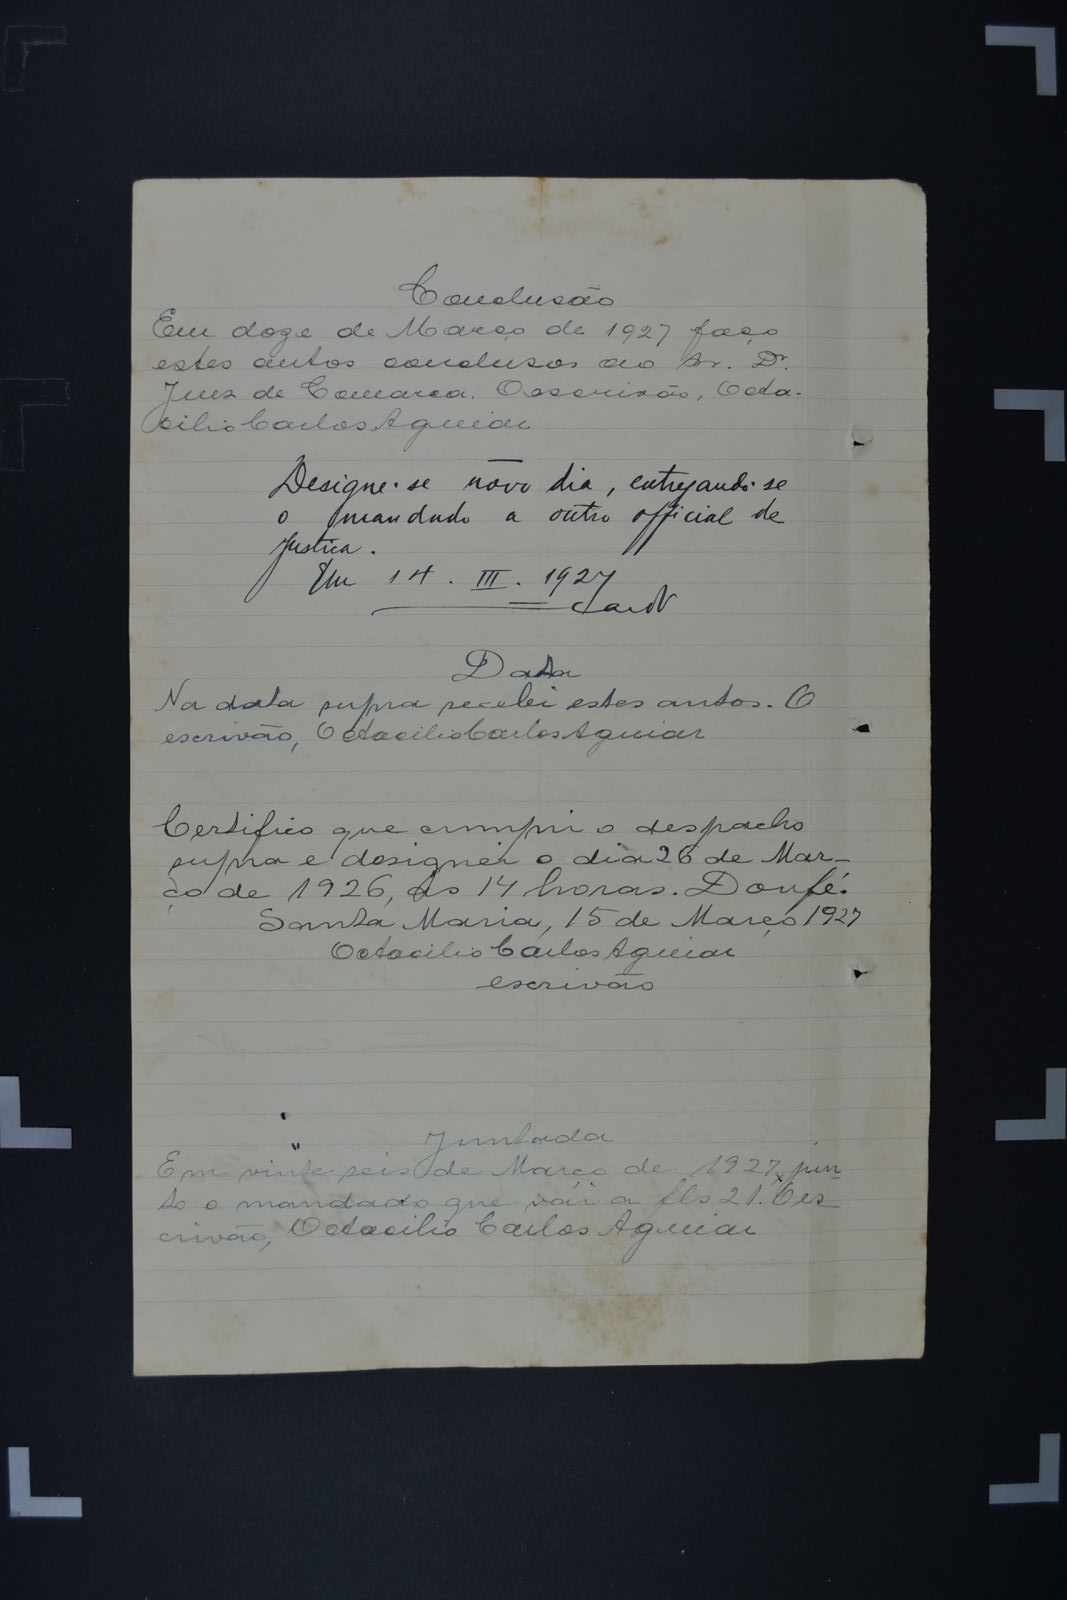 Conclusão
Em doze de Março de 1927 faço
estes autos conclusos ao Sr. Dr.
Juiz de Comarca. O escrivão, Octa-
cilio Carlos Aguiar
Designe-se nôvo dia, entregando-se
o mandado a outro official de
justiça.
Em 14. III. 1927
Data
Na data supra recebi estes autos. O
escrivão, Octacilio Carlos Aguiar
Certifico que cumpri o despacho
supra e designei o dia 26 de Mar-
ço de 1926, ás 14 horas. Dou fé.
Santa Maria, 15 de Março 1927
Octacilio Carlos Aguiar
escrivão
Juntada
Em vinte seis de Março de 1927, jun-
to o mandado que vái a fls 21. O es-
crivão, Octacilio Carlos Aguiar